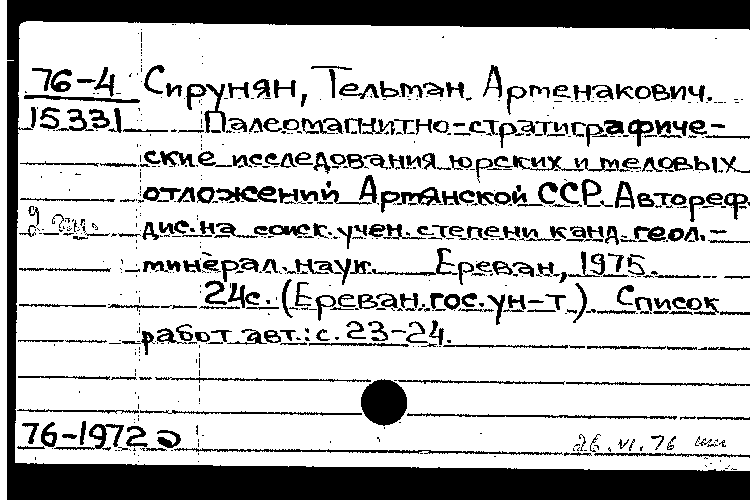 76-4 Сирунян, Тельман Артенакович.
15331 Палеомагнитно-стратиграфиче-
ские исследования юрских и меловых
отложений Армянской ССР. Автореф.
дис. на соиск. учен. степени канд. геол.-
минерал. наук. Ереван, 1975.
24с. (Ереван. гос. ун-т). Список
работ авт.: с. 23-24.
76-1972
26.VI.76